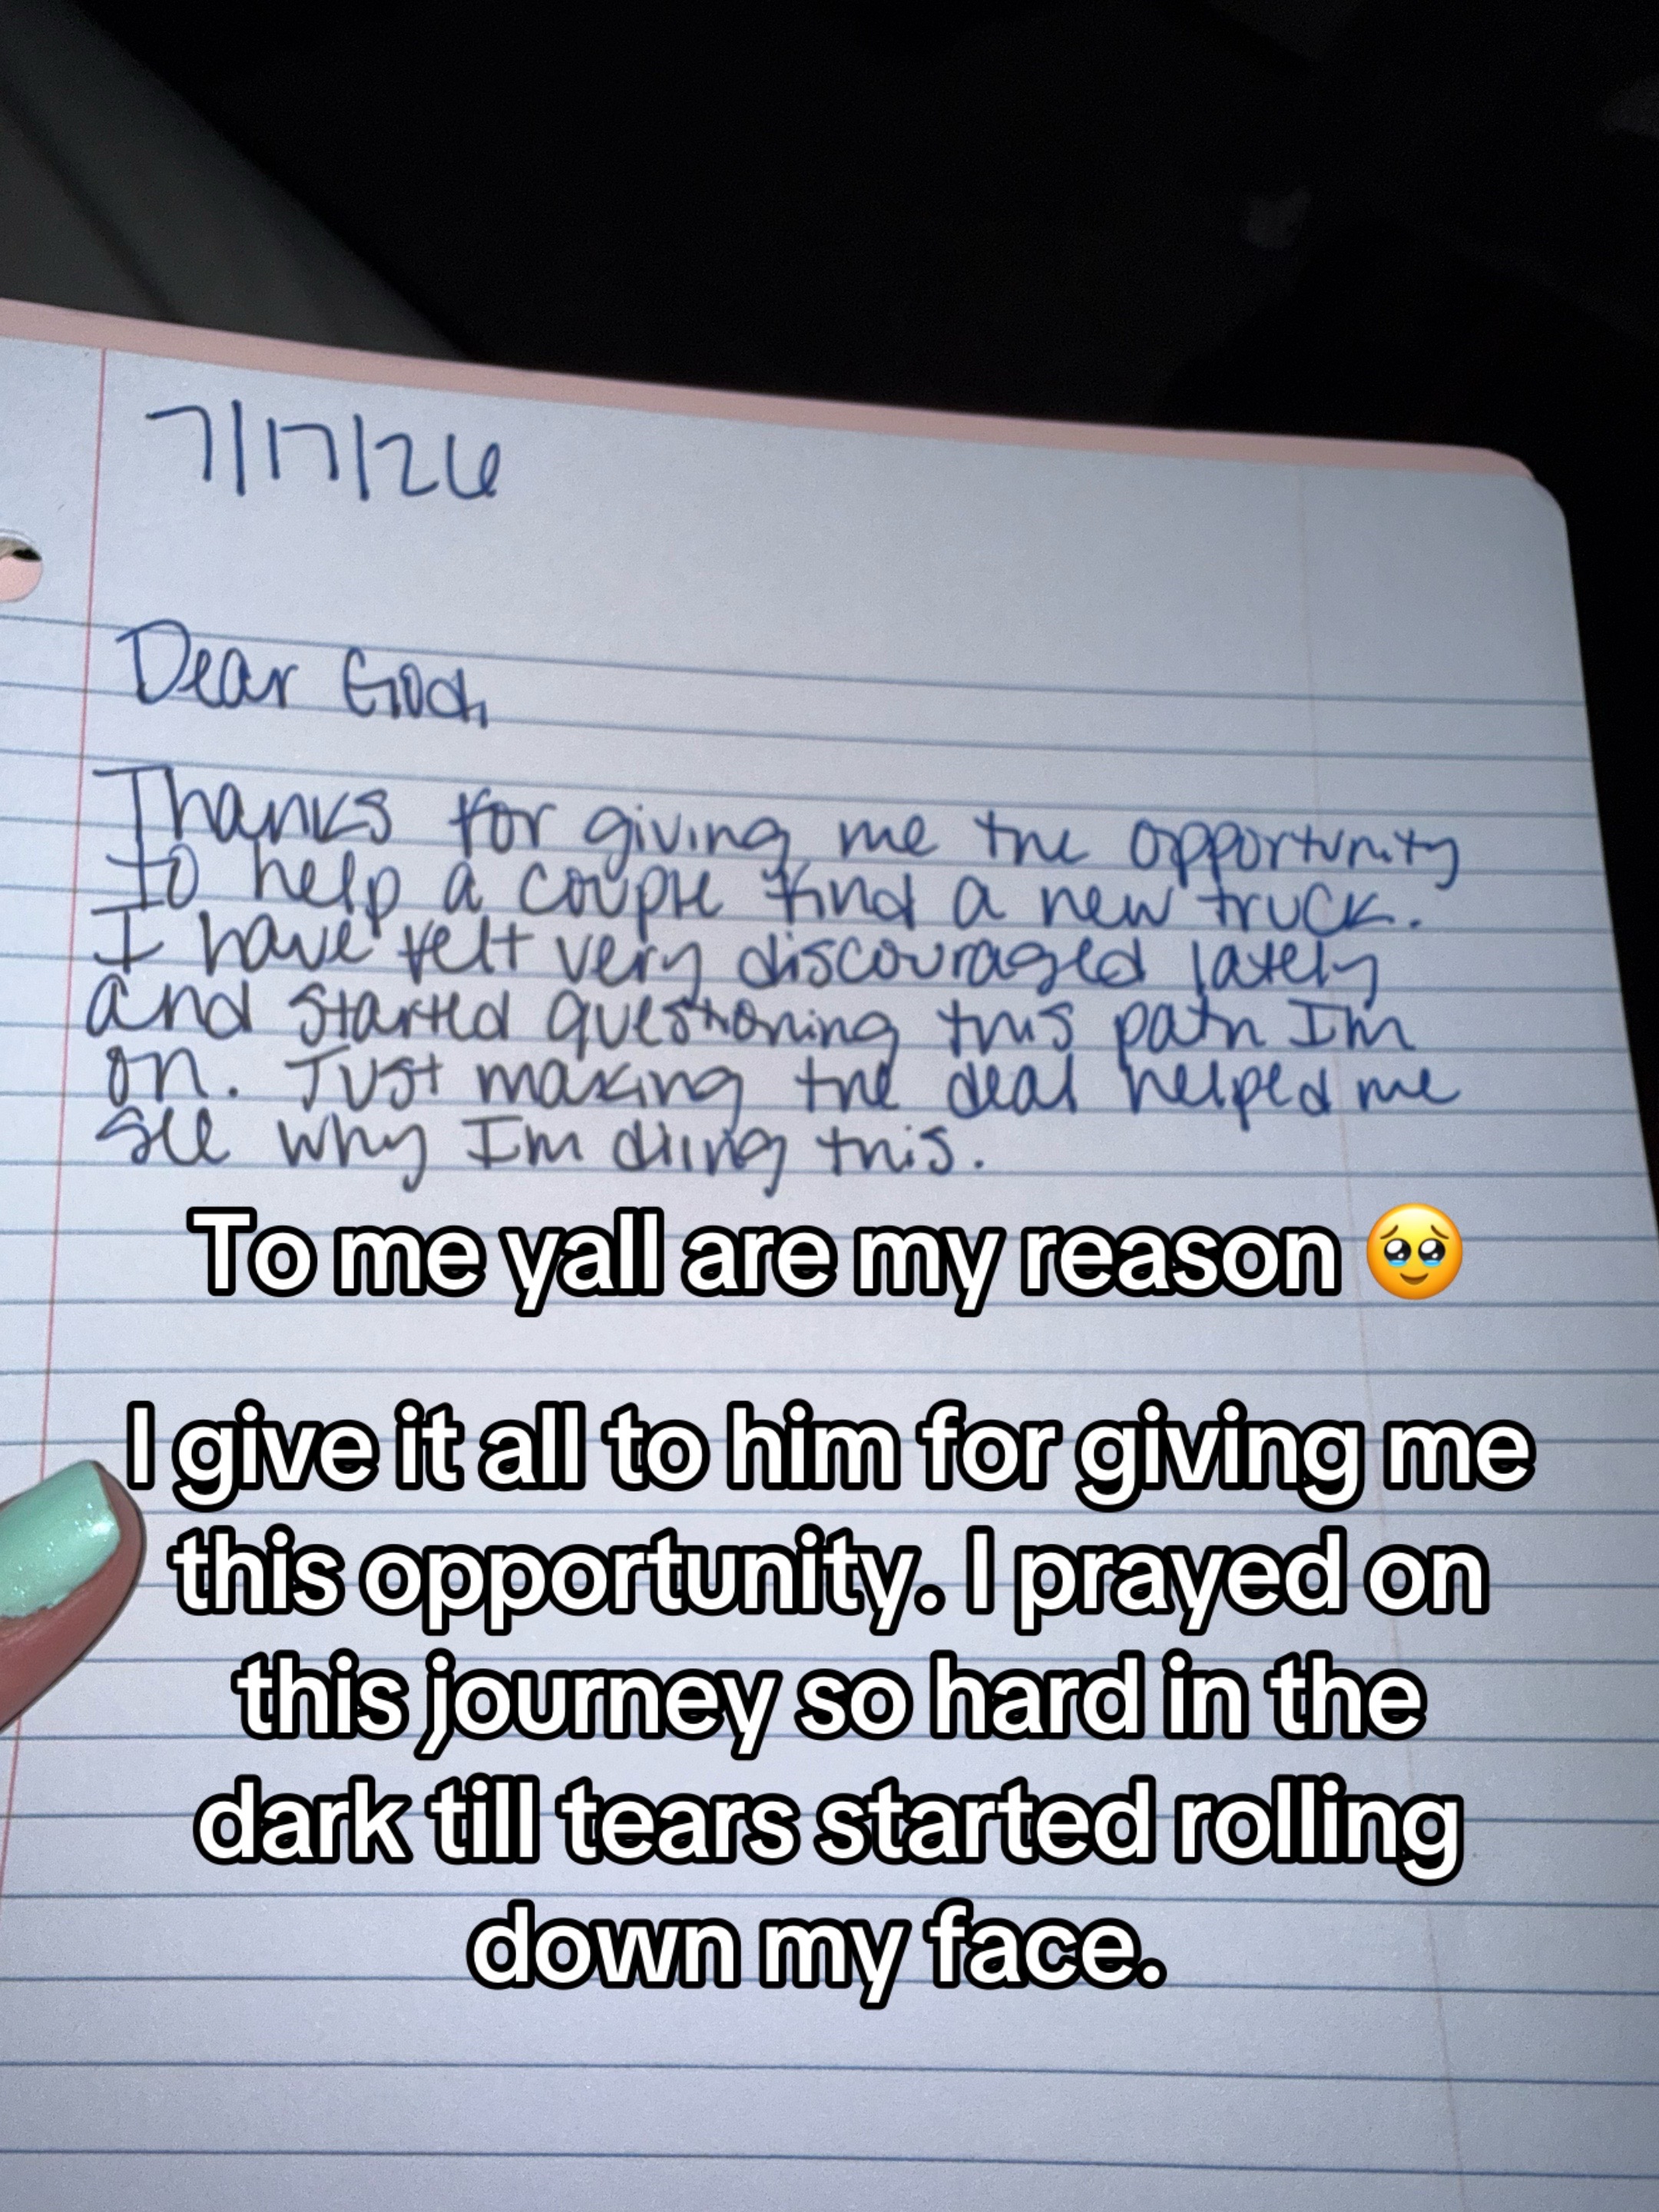 7/17/26
Dear God,
Thanks for giving me the opportunity
to help a couple find a new truck.
I have felt very discouraged lately
and started questioning this path Im
on. Just making the deal helped me
see why Im diing this.
To me yall are my reason 🥹
I give it all to him for giving me
this opportunity. I prayed on
this journey so hard in the
dark till tears started rolling
down my face.